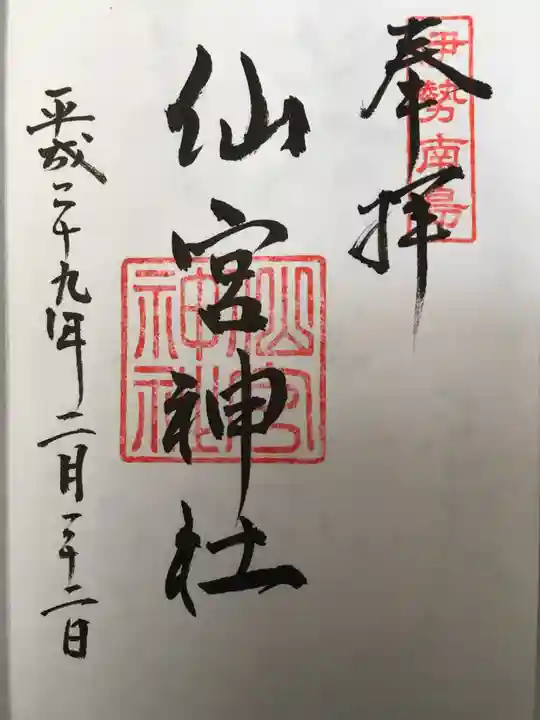 奉拝
伊勢南島
仙宮神社
仙宮神社
平成二十九年二月二十二日